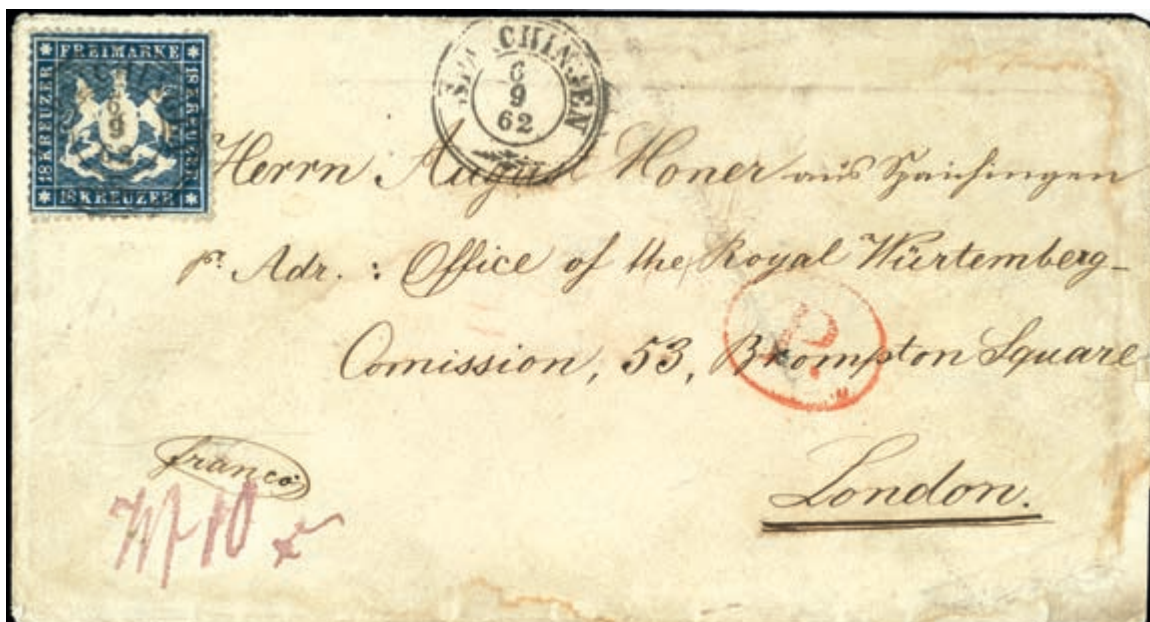 FREIMARKE
18 KREUZER
18 KREUZER
18 KREUZER
6
9
SPAICHINGEN
6
9
62
Herrn August Honer aus Spaichingen
pr. Adr. : Office of the Royal Würtemberg-
Comission, 53, Brompton Square
London.
franco
P.